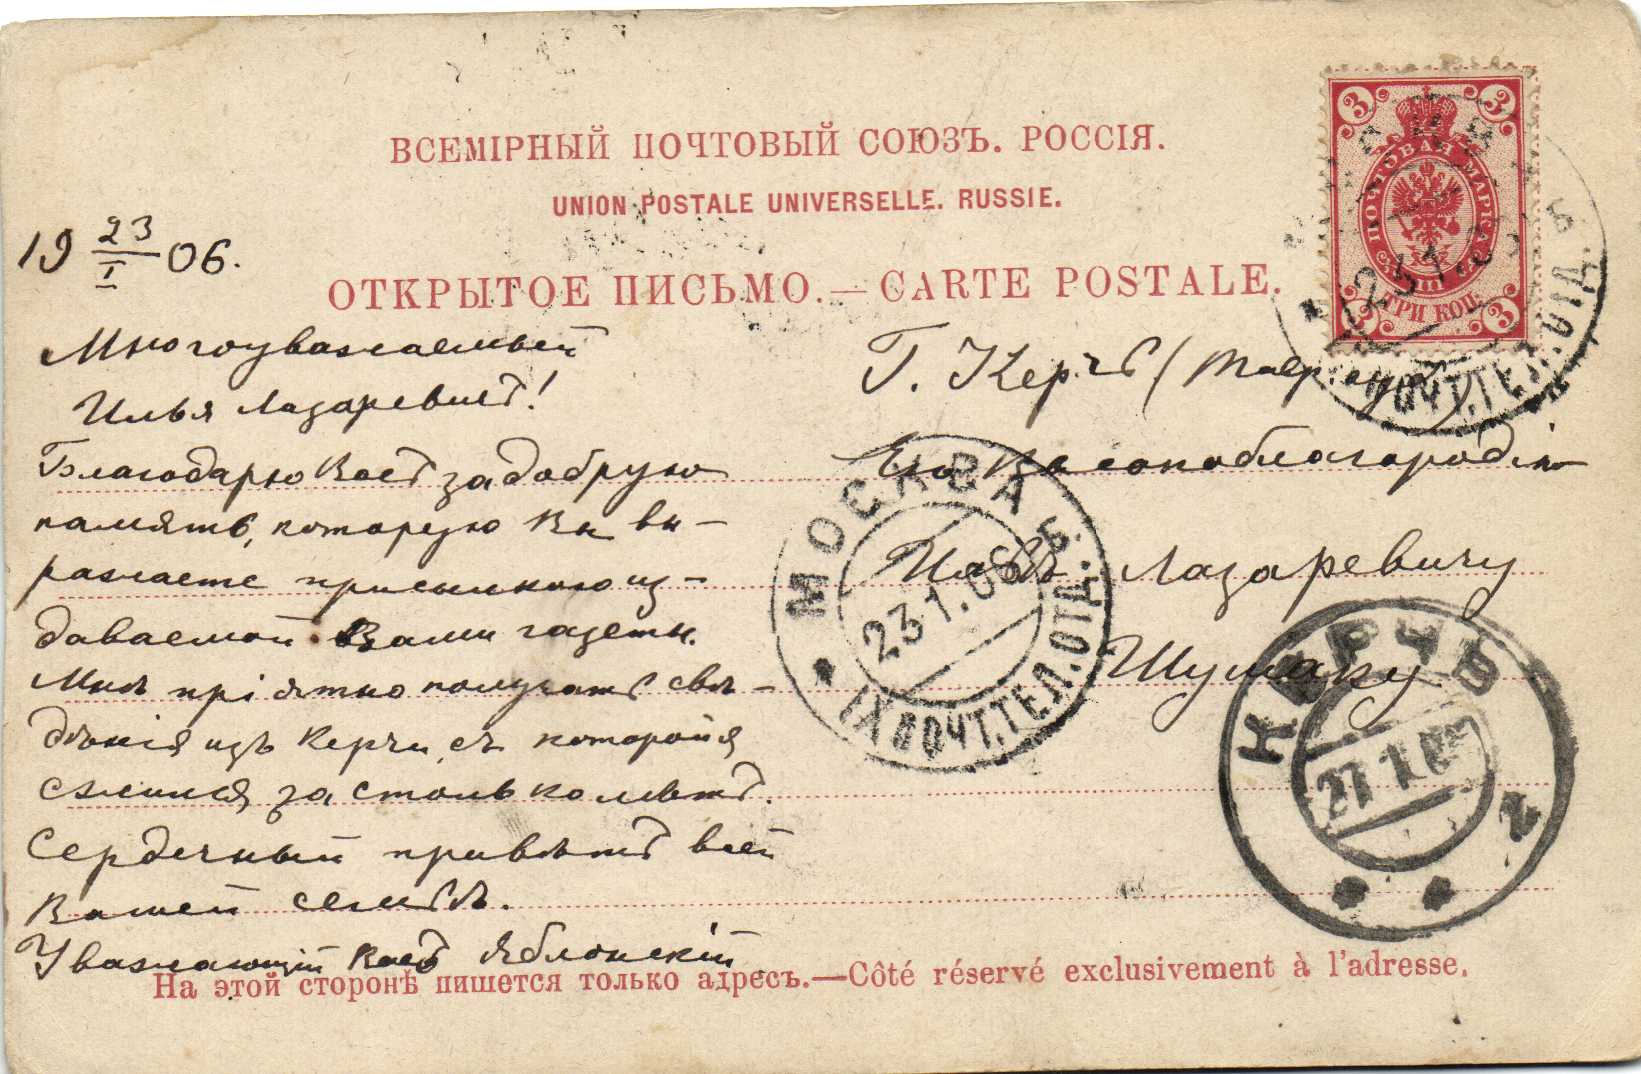 ВСЕМІРНЫЙ ПОЧТОВЫЙ СОЮЗЪ. РОССІЯ.
UNION POSTALE UNIVERSELLE. RUSSIE.
ОТКРЫТОЕ ПИСЬМО.—CARTE POSTALE.
3 3
ПОЧТОВАЯ МАРКА
ТРИ КОП.
3 3
19 23/I 06.
Многоуважаемый
Илья Лазаревичъ!
Благодарю Васъ за добрую
память, которую Вы вы-
ражаете присылкою из-
даваемой Вами газеты.
Мнѣ пріятно получать свѣ-
дѣнія изъ Керчи, съ которой я
сжился за столько лѣтъ.
Сердечный привѣтъ всей
Вашей семьѣ.
Уважающій Васъ Яблонскій
Г. Керчь (Таврич.)
Его Высокоблагородію
Ильѣ Лазаревичу
Шумаку
МОСКВА
23.1.06 Б.
IX ПОЧТ.ТЕЛ.ОТД.
23.1.0
ПОЧТ.ТЕЛ.ОТД. Б
КЕРЧЬ
27.1.06
2
На этой сторонѣ пишется только адресъ.—Côté réservé exclusivement à l'adresse.